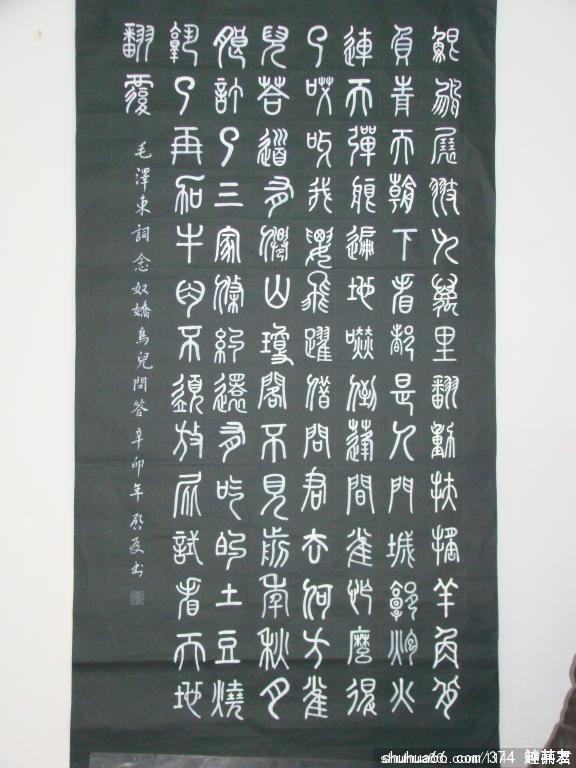 鯤鵬展翅九萬里翻動扶搖羊角背
負青天朝下看都是人門城郭炮火
連天彈痕遍地嚇倒蓬間雀怎麼得
了哎呀我要飛躍借問君去何方雀
兒荅道有仙山瓊閣不見前年秋月
朗訂了三家條約還有吃的土豆燒
熟了再加牛肉不須放屁試看天地
翻覆
毛澤東詞念奴嬌鳥兒問答 辛卯年 书
shuhua66.com/1374